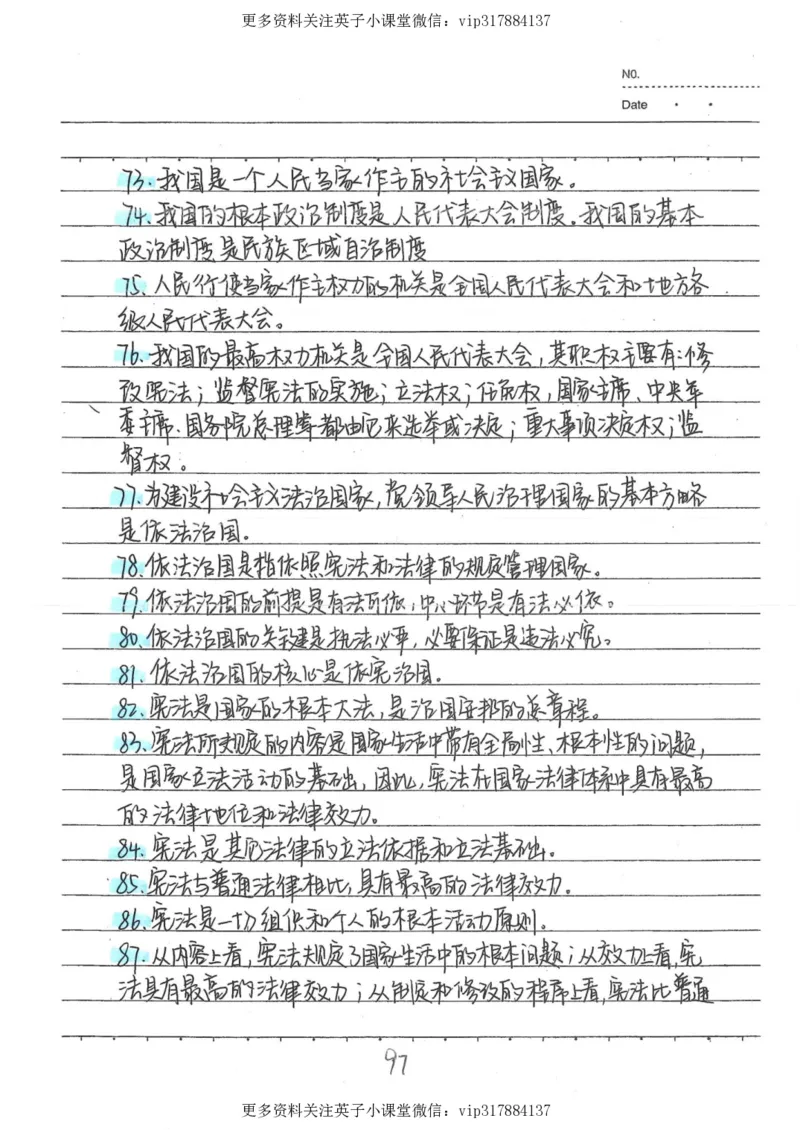 更多资料关注英子小课堂微信：vip317884137
NO.
Date
73.我国是一个人民当家作主的社会主义国家。
74.我国的根本政治制度是人民代表大会制度。我国的基本
政治制度是民族区域自治制度
75.人民行使当家作主权力的机关是全国人民代表大会和地方各
级人民代表大会。
76.我国的最高权力机关是全国人民代表大会，其职权主要有：修
改宪法；监督宪法的实施；立法权；任免权，国家主席、中央军
委主席、国务院总理等都由它来选举或决定；重大事项决定权；监
督权。
77.为建设社会主义法治国家，党领导人民治理国家的基本方略
是依法治国。
78.依法治国是指依照宪法和法律的规定管理国家。
79.依法治国的前提是有法可依，中心环节是有法必依。
80.依法治国的关键是执法必严，必要保证是违法必究。
81.依法治国的核心是依宪治国。
82.宪法是国家的根本大法，是治国安邦的总章程。
83.宪法所规定的内容是国家生活中带有全局性、根本性的问题，
是国家立法活动的基础，因此，宪法在国家法律体系中具有最高
的法律地位和法律效力。
84.宪法是其他法律的立法依据和立法基础。
85.宪法与普通法律相比，具有最高的法律效力。
86.宪法是一切组织和个人的根本活动原则。
87.从内容上看，宪法规定了国家生活中的根本问题；从效力上看，宪
法具有最高的法律效力；从制定和修改的程序上看，宪法比普通
97
更多资料关注英子小课堂微信：vip317884137